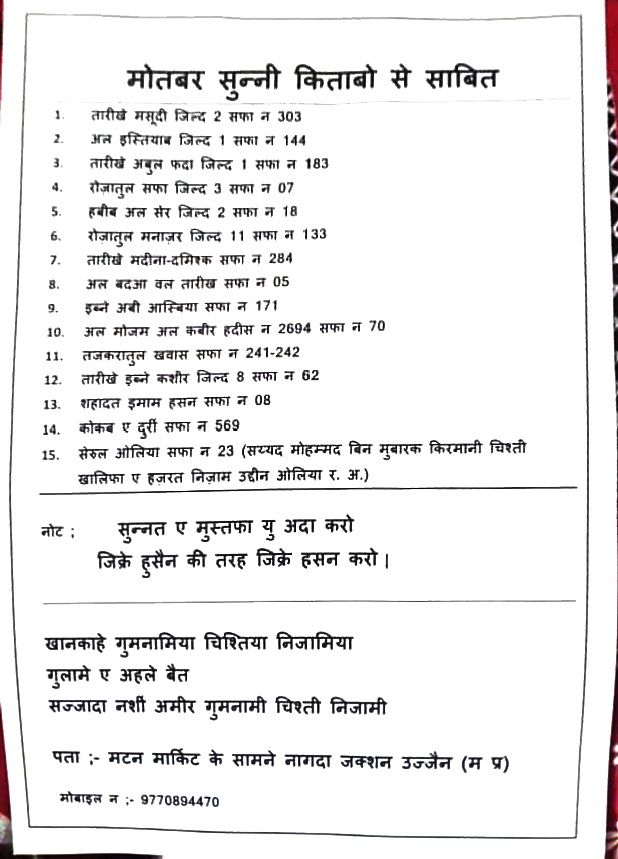 मोतबर सुन्नी किताबो से साबित
1. तारीखे मसूदी जिल्द 2 सफा न 303
2. अल इस्तियाब जिल्द 1 सफा न 144
3. तारीखे अबुल फदा जिल्द 1 सफा न 183
4. रोज़ातुल सफा जिल्द 3 सफा न 07
5. हबीब अल सेर जिल्द 2 सफा न 18
6. रोज़ातुल मनाज़र जिल्द 11 सफा न 133
7. तारीखे मदीना-दमिश्क सफा न 284
8. अल बदआ वल तारीख सफा न 05
9. इब्ने अबी आस्बिया सफा न 171
10. अल मोजम अल कबीर हदीस न 2694 सफा न 70
11. तजकरातुल खवास सफा न 241-242
12. तारीखे इब्ने कशीर जिल्द 8 सफा न 62
13. शहादत इमाम हसन सफा न 08
14. कोकब ए दुर्री सफा न 569
15. सेरुल ओलिया सफा न 23 (सय्यद मोहम्मद बिन मुबारक किरमानी चिश्ती
खालिफा ए हज़रत निज़ाम उद्दीन ओलिया र. अ.)
नोट ; सुन्नत ए मुस्तफा यु अदा करो
जिक्रे हुसैन की तरह जिक्रे हसन करो |
खानकाहे गुमनामिया चिश्तिया निजामिया
गुलामे ए अहले बैत
सज्जादा नशीं अमीर गुमनामी चिश्ती निजामी
पता ;- मटन मार्किट के सामने नागदा जक्शन उज्जैन (म प्र)
मोबाइल न ;- 9770894470